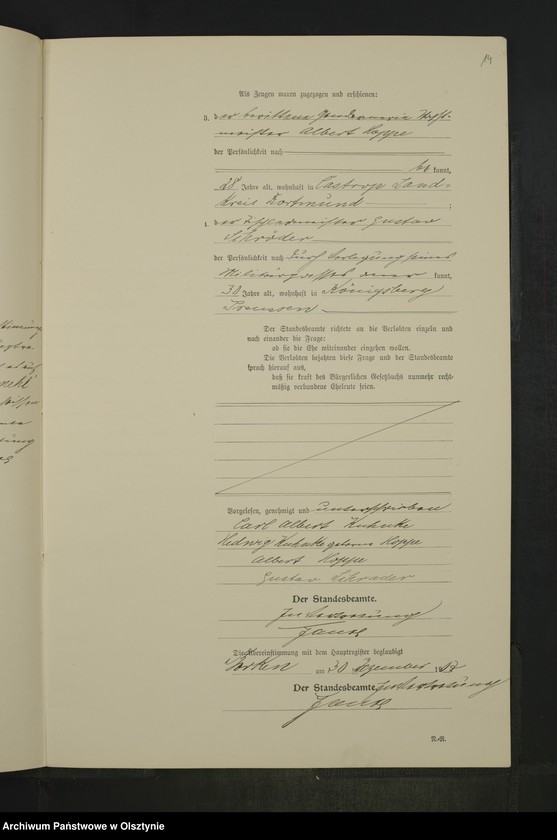 14
Als Zeugen waren zugezogen und erschienen:
3. der berittene Gendarmerie Wacht-
meister Albert Hoppe
der Persönlichkeit nach
be kannt,
28 Jahre alt, wohnhaft in Castrop Land-
kreis Dortmund ;
4. der Gustav
Schröder
der Persönlichkeit nach durch Vorlegung seines
Militärpasses, aner kannt,
30 Jahre alt, wohnhaft in Königsberg
Preussen
Der Standesbeamte richtete an die Verlobten einzeln und
nach einander die Frage:
ob sie die Ehe miteinander eingehen wollen.
Die Verlobten bejahten diese Frage und der Standesbeamte
sprach hierauf aus,
daß sie kraft des Bürgerlichen Gesetzbuchs nunmehr recht-
mäßig verbundene Eheleute seien.
Vorgelesen, genehmigt und unterschrieben
Carl Albert Kuhnke
Hedwig Kuhnke geborene Hoppe
Albert Hoppe
Gustav Schrader
Der Standesbeamte.
In Vertretung
Die Übereinstimmung mit dem Hauptregister beglaubigt
am 30 Dezember 19
Der Standesbeamte. In Vertretung
N.-R.
Archiwum Państwowe w Olsztynie